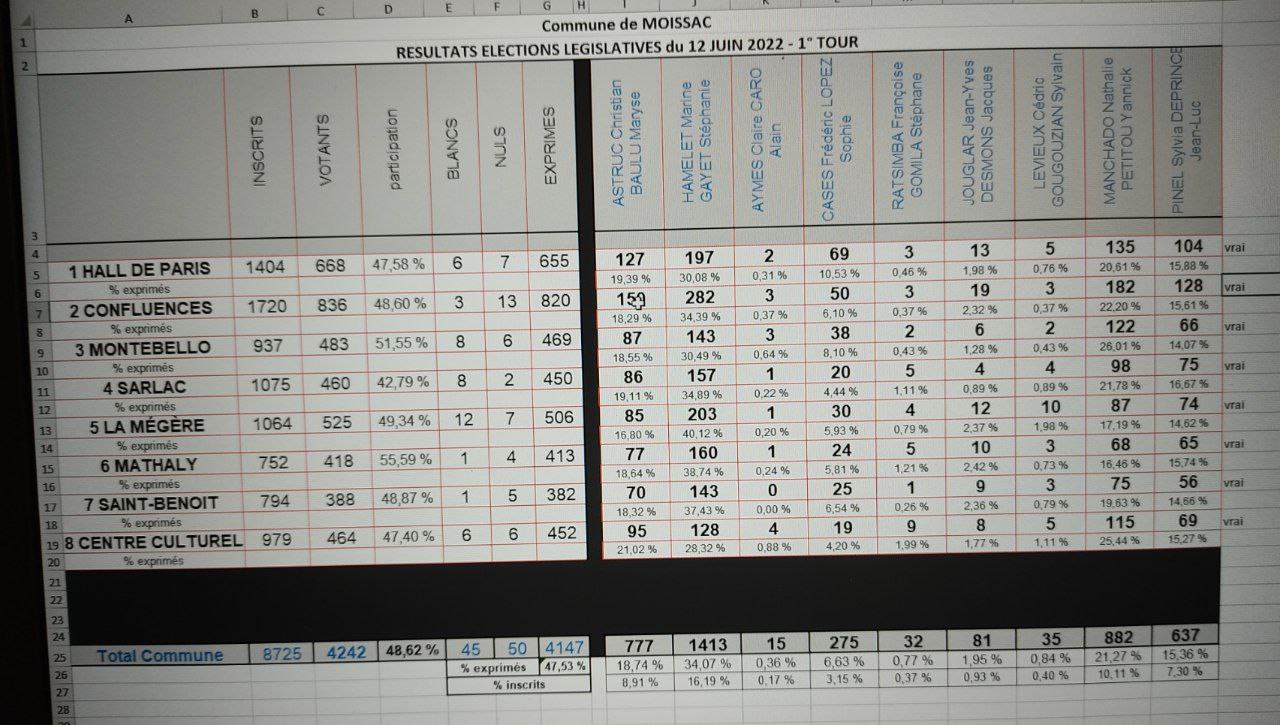 A B C D E F G H
1 Commune de MOISSAC
2 RESULTATS ELECTIONS LEGISLATIVES du 12 JUIN 2022 - 1° TOUR
3 INSCRITS VOTANTS participation BLANCS NULS EXPRIMES ASTRUC Christian BAULU Maryse HAMELET Marine GAYET Stéphanie AYMES Claire CARO Alain CASES Frédéric LOPEZ Sophie RATSIMBA Françoise GOMILA Stéphane JOUGLAR Jean-Yves DESMONS Jacques LEVIEUX Cédric GOUGOUZIAN Sylvain MANCHADO Nathalie PETITOU Yannick PINEL Sylvia DEPRINCE Jean-Luc
4
5 1 HALL DE PARIS 1404 668 47,58 % 6 7 655 127 197 2 69 3 13 5 135 104 vrai
6 % exprimés 19,39 % 30,08 % 0,31 % 10,53 % 0,46 % 1,98 % 0,76 % 20,61 % 15,88 %
7 2 CONFLUENCES 1720 836 48,60 % 3 13 820 282 3 50 3 19 3 182 128 vrai
8 % exprimés 18,29 % 34,39 % 0,37 % 6,10 % 0,37 % 2,32 % 0,37 % 22,20 % 15,61 %
9 3 MONTEBELLO 937 483 51,55 % 8 6 469 87 143 3 38 2 6 2 122 66 vrai
10 % exprimés 18,55 % 30,49 % 0,64 % 8,10 % 0,43 % 1,28 % 0,43 % 26,01 % 14,07 %
11 4 SARLAC 1075 460 42,79 % 8 2 450 86 157 1 20 5 4 4 98 75 vrai
12 % exprimés 19,11 % 34,89 % 0,22 % 4,44 % 1,11 % 0,89 % 0,89 % 21,78 % 16,67 %
13 5 LA MÉGÈRE 1064 525 49,34 % 12 7 506 85 203 1 30 4 12 10 87 74 vrai
14 % exprimés 16,80 % 40,12 % 0,20 % 5,93 % 0,79 % 2,37 % 1,98 % 17,19 % 14,62 %
15 6 MATHALY 752 418 55,59 % 1 4 413 77 160 1 24 5 10 3 68 65 vrai
16 % exprimés 18,64 % 38,74 % 0,24 % 5,81 % 1,21 % 2,42 % 0,73 % 16,46 % 15,74 %
17 7 SAINT-BENOIT 794 388 48,87 % 1 5 382 70 143 0 25 1 9 3 75 56 vrai
18 % exprimés 18,32 % 37,43 % 0,00 % 6,54 % 0,26 % 2,36 % 0,79 % 19,63 % 14,66 %
19 8 CENTRE CULTUREL 979 464 47,40 % 6 6 452 95 128 4 19 9 8 5 115 69 vrai
20 % exprimés 21,02 % 28,32 % 0,88 % 4,20 % 1,99 % 1,77 % 1,11 % 25,44 % 15,27 %
21
22
23
24
25 Total Commune 8725 4242 48,62 % 45 50 4147 777 1413 15 275 32 81 35 882 637
26 % exprimés 47,53 % 18,74 % 34,07 % 0,36 % 6,63 % 0,77 % 1,95 % 0,84 % 21,27 % 15,36 %
27 % inscrits 8,91 % 16,19 % 0,17 % 3,15 % 0,37 % 0,93 % 0,40 % 10,11 % 7,30 %
28